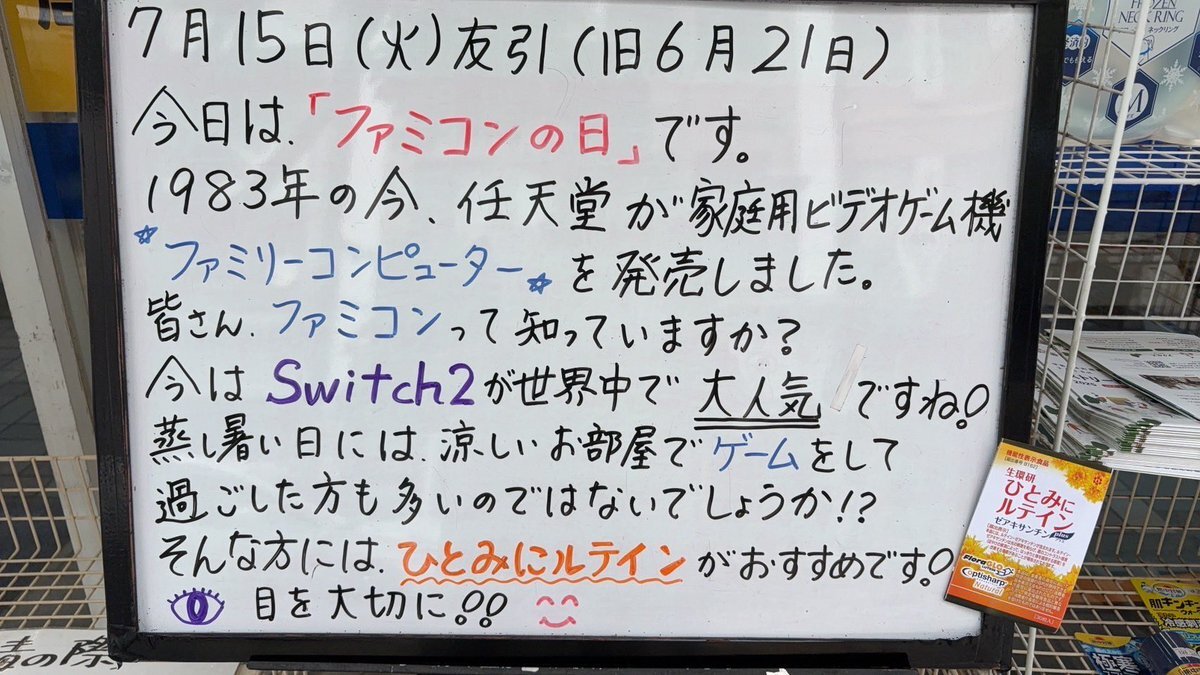 7月15日(火)友引(旧6月21日)
今日は、「ファミコンの日」です。
1983年の今、任天堂が家庭用ビデオゲーム機
☆ファミリーコンピューター☆を発売しました。
皆さん、ファミコンって知っていますか?
今はSwitch2が世界中で大人気ですね!
蒸し暑い日には、涼しいお部屋でゲームをして
過ごした方も多いのではないでしょうか!?
そんな方には、ひとみにルテインがおすすめです!
目を大切に!!
FROZEN
NECK RING
ネックリング
M
機能性表示食品
生環研
ひとみに
ルテイン
ゼアキサンチン plus
FloraGLO
Optisharp
Natural
肌キンキン
冷感刺激
極寒
の際